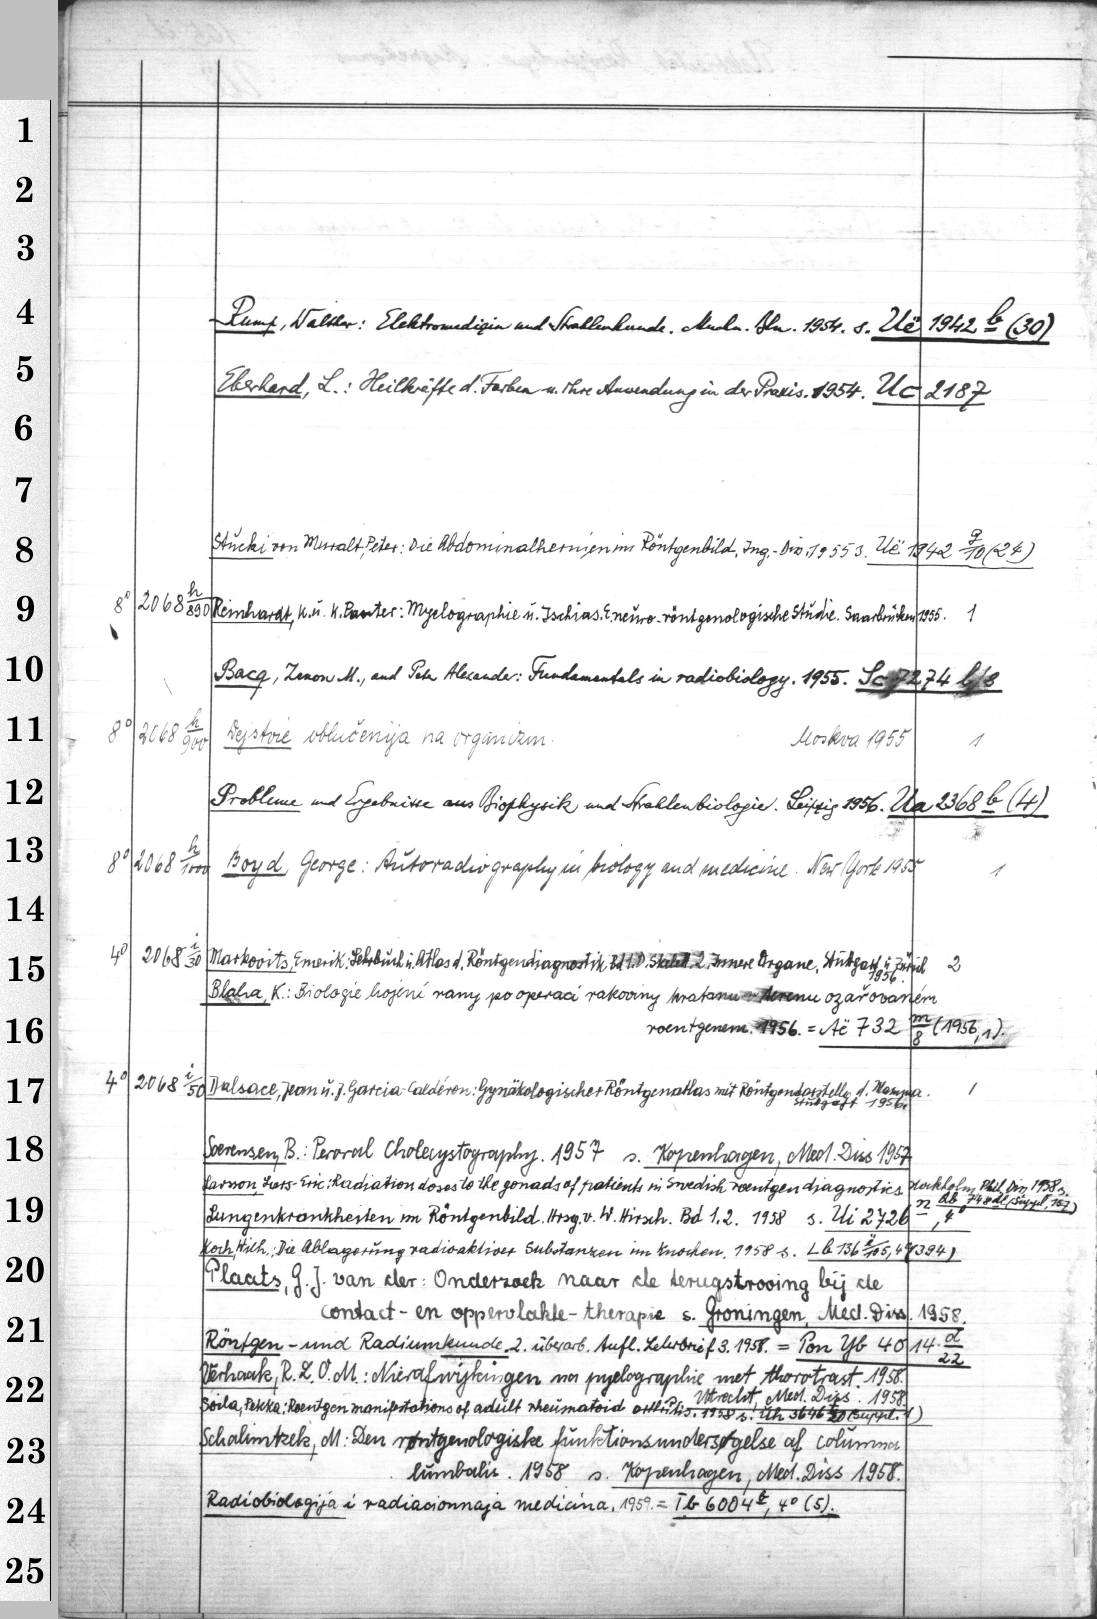 1
2
3
4
Rump, Walther: Elektromedizin und Strahlenkunde. Mchn. Bln. 1954. s. Uë 1942 b (30)
5
Eberhard, L.: Heilkräfte d. Farben u. ihre Anwendung in der Praxis. 1954. Uc 2187
6
7
8
Stucki von Muralt, Peter: Die Abdominalhernien im Röntgenbild, Ing.-Diss. 1955 s. Uë 1942 g/10 (24)
9
8° 2068 h/890 Reinhardt, K. u. K. Panter: Myelographie u. Ischias. E. neuro-röntgenologische Studie. Saarbrücken 1955. 1
10
Bacq, Zenon M., and Peter Alexander: Fundamentals in radiobiology. 1955. Sc 7274 b/8
11
8° 2068 h/900 Dejstvie oblučenija na organizm. Moskva 1955 1
12
Probleme und Ergebnisse aus Biophysik und Strahlenbiologie. Leipzig 1956. Ua 2368 b (4)
13
8° 2068 h/1000 Boyd, George: Autoradiography in biology and medicine. New York 1955 1
14
15
4° 2068 i/30 Markovits, Emerik: Lehrbuch u. Atlas d. Röntgendiagnostik Bd 1. D. Skelett. 2. Innere Organe, Stuttgart u. Zürich 1956. 2
Blaha, K.: Biologie hojení rany po operaci rakoviny hrtanu v terenu ozařovaném
16
roentgenem. 1956. = Aë 732 m/8 (1956,1).
17
4° 2068 i/50 Dalsace, Jean u. J. Garcia-Calderon: Gynäkologischer Röntgenatlas mit Röntgendarstellg d. Mamma. Stuttgart 1956. 1
18
Soerensen, B.: Peroral Cholecystography. 1957 s. Kopenhagen, Med. Diss 1957
Larsson, Lars-Eric: Radiation doses to the gonads of patients in Swedish roentgen diagnostics Stockholm, Phil. Diss. 1958 s.
n Ab 748 dl (Suppl. 157)
19
Lungenkrankheiten im Röntgenbild. Hrsg. v. W. Hirsch. Bd 1.2. 1958 s. Ui 2726 n, 4°
Koch, Wilh.: Die Ablagerung radioaktiver Substanzen im Knochen. 1958 s. Lb 136 i/105, 4° (394)
20
Plaats, G. J. van der: Onderzoek naar de terugstrooing bij de
contact- en oppervlakte-therapie s. Groningen, Med. Diss. 1958.
21
Röntgen- und Radiumkunde. 2. überarb. Aufl. Lehrbrief 3. 1958. = Pon Yb 4014 d/22
22
Verhaak, R. L. O. M.: Nierafwijkingen na pyelographie met thorotrast. 1958.
Utrecht, Med. Diss. 1958
Soila, Pekka: Roentgen manifestations of adult rheumatoid arthritis. 1958 s. Uh 3646 /20 (Suppl. 1)
23
Schalimtzek, M: Den røntgenologiske funktionsundersøgelse af columna
lumbalis. 1958 s. Kopenhagen, Med. Diss 1958.
24
Radiobiologija i radiacionnaja medicina. 1959. = Ib 6004 t, 4° (5).
25